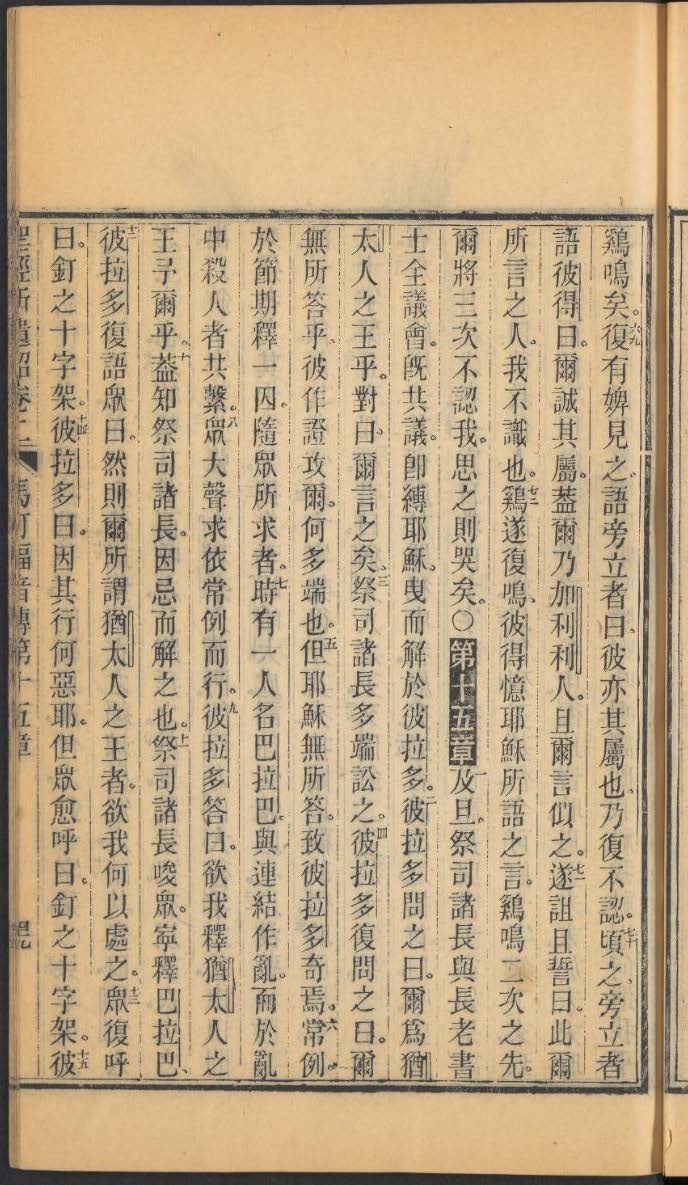 鷄鳴矣。六九復有婢見之、語旁立者曰、彼亦其屬也、乃復不認。七十頃之、旁立者
語彼得曰。爾誠其屬。葢爾乃加利利人。且爾言似之。七一遂詛且誓曰。此爾
所言之人、我不識也。七二鷄遂復鳴、彼得憶耶穌所語之言。鷄鳴二次之先。
爾將三次不認我。思之則哭矣。〇第十五章一及旦。祭司諸長與長老書
士全議會。旣共議。卽縛耶穌。曳而解於彼拉多。二彼拉多問之曰。爾爲猶
太人之王乎。對曰、爾言之矣。三祭司諸長多端訟之。四彼拉多復問之曰。爾
無所答乎、彼作證攻爾。何多端也。五但耶穌無所答。致彼拉多奇焉。六常例。
於節期釋一囚。隨眾所求者。七時有一人名巴拉巴。與連結作亂。而於亂
中殺人者共繫。八眾大聲求依常例而行。九彼拉多答曰。欲我釋猶太人之
王予爾乎。十葢知祭司諸長。因忌而解之也。十一祭司諸長唆眾。寧釋巴拉巴、
十二彼拉多復語眾曰。然則爾所謂猶太人之王者。欲我何以處之。十三眾復呼
曰。釘之十字架。十四彼拉多曰。因其行何惡耶。但眾愈呼曰。釘之十字架。十五彼
聖經新遺詔卷十二 馬可福音傳第十五章